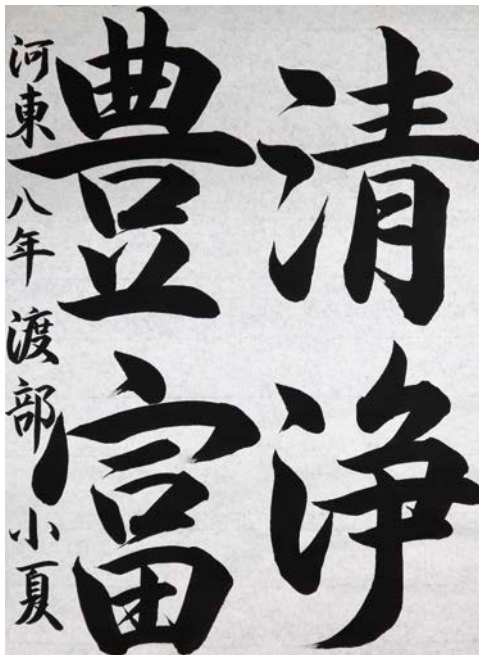 清浄
豊富
河東 八年 渡部 小夏